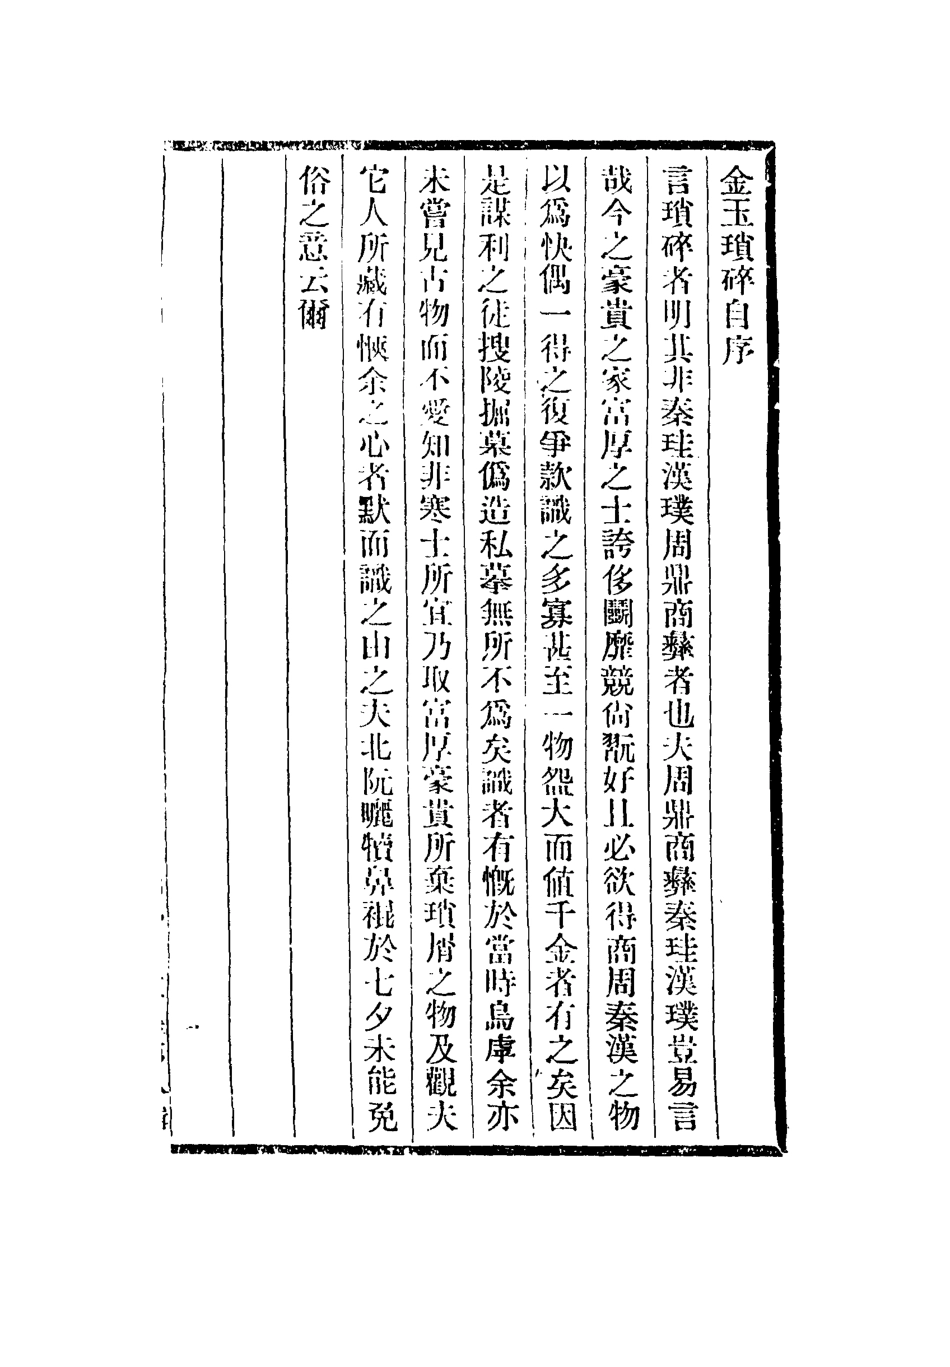 金玉瑣碎自序
言瑣碎者明其非秦珪漢璞周鼎商彝者也夫周鼎商彝秦珪漢璞豈易言
哉今之豪貴之家富厚之士誇侈鬭靡競尙翫好且必欲得商周秦漢之物
以爲快偶一得之復爭款識之多寡甚至一物盌大而値千金者有之矣因
是謀利之徒搜陵掘墓僞造私摹無所不爲矣識者有慨於當時烏虖余亦
未嘗見古物而不愛知非寒士所宜乃取富厚豪貴所棄瑣屑之物及觀夫
它人所藏有愜余之心者默而識之由之夫北阮曬犢鼻裩於七夕未能免
俗之意云爾